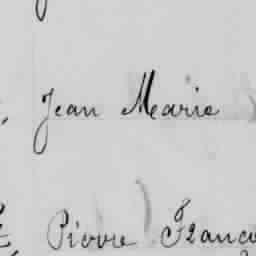 Jean Marie
Pierre Franco